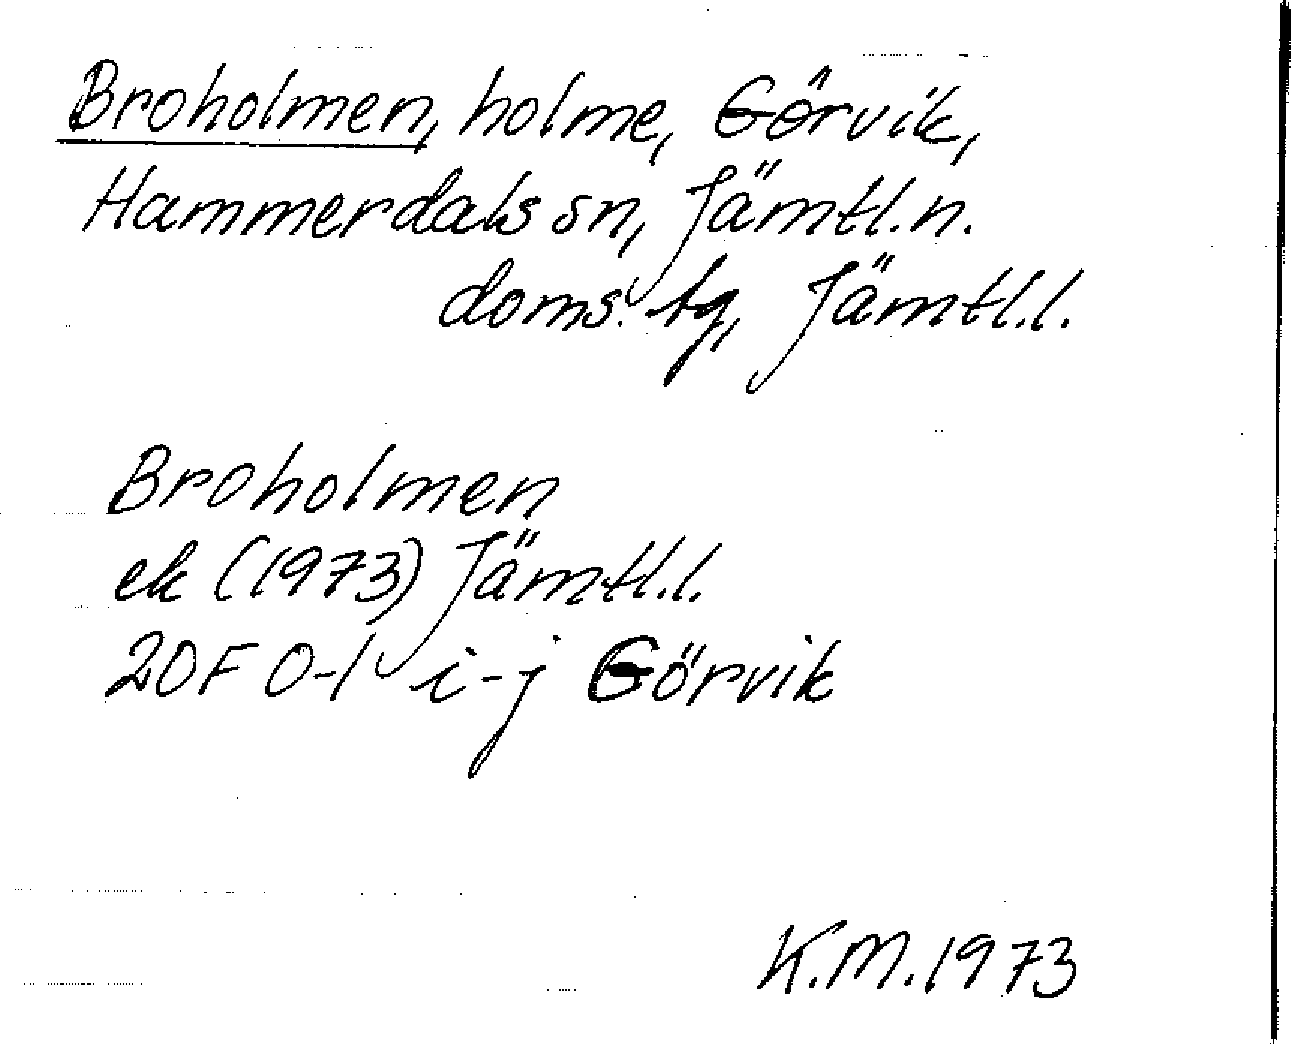 Broholmen, holme, Görvik,
Hammerdals sn, Jämtl.n.
doms. tg, Jämtl.l.
Broholmen
ek (1973) Jämtl.l.
20F 0-1 i-j Görvik
K.M.1973